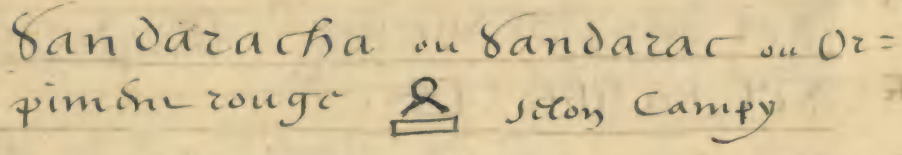 Sandaracha ou Sandarac ou Or=
piment rouge selon Campy